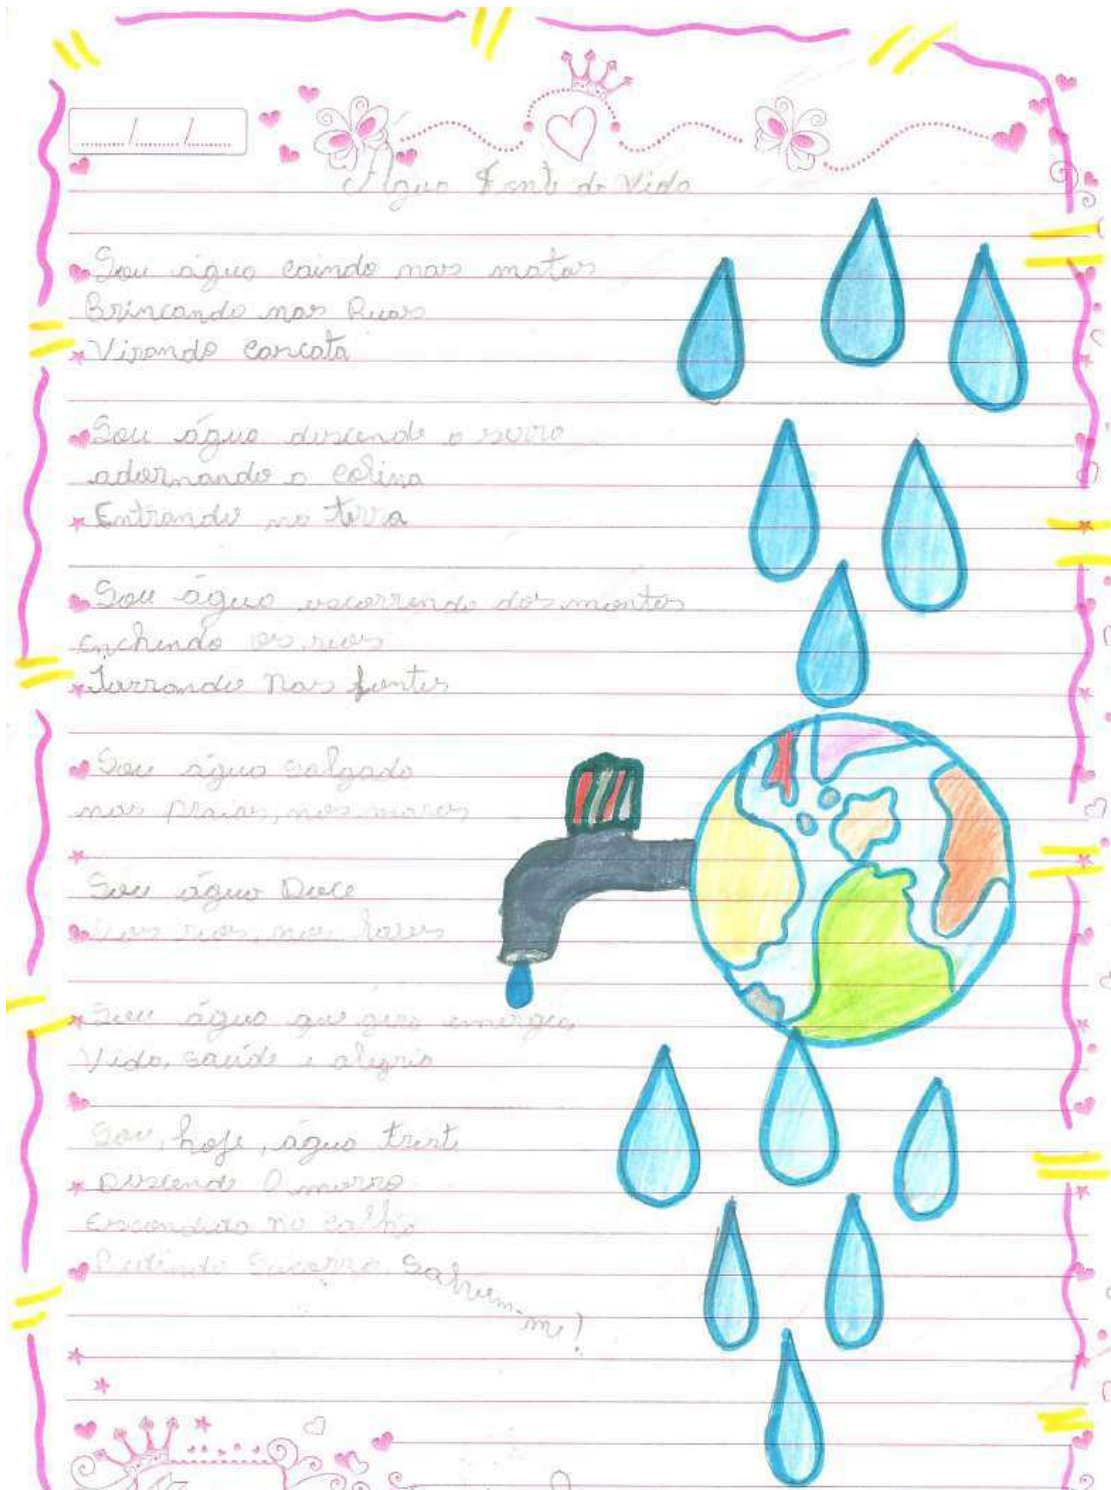 Água Fonte de Vida
Sou água caindo nas matas
Brincando nas Ruas
Virando cascata
Sou água descendo a serra
adornando a colina
Entrando na terra
Sou água escorrendo dos montes
enchendo os rios
Jorrando Nas fontes
Sou água salgada
nas praias, nos mares
Sou água Doce
nos rios, nos lares
Sou água que gera energia
Vida, saúde e alegria
Sou, hoje, água triste
Descendo O morro
Escondida no
Pedindo Socorro Salvem-
me!